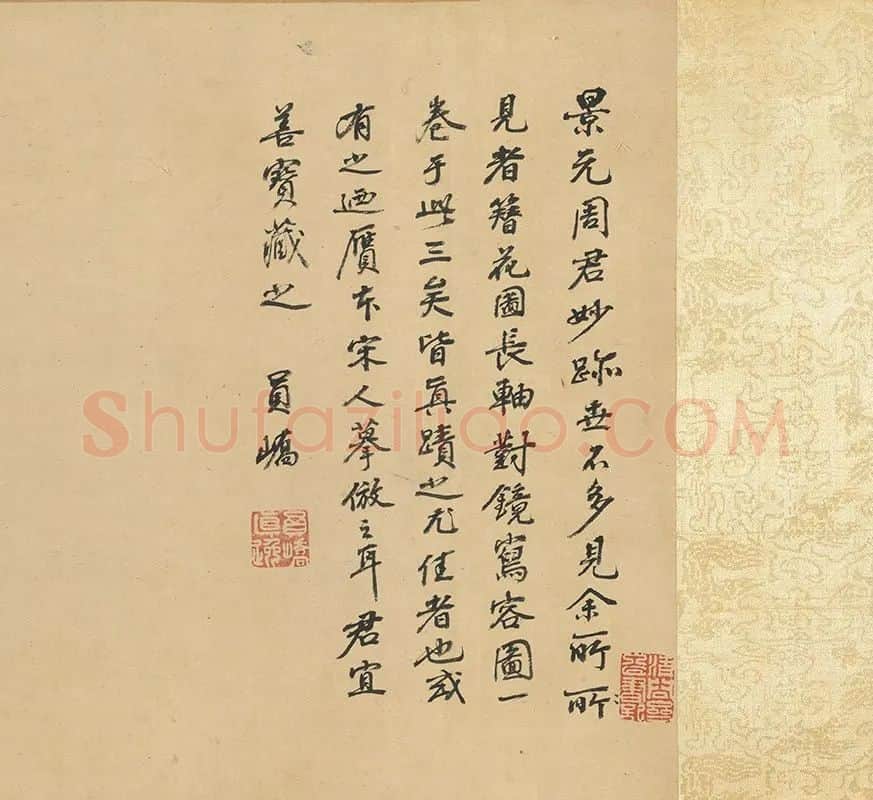 景元周君妙跡世不多見余所所
見者簪花圖長軸對鏡寫容圖一
卷于此三矣皆真蹟之尤佳者也或
有之迺贋本宋人摹倣之耳君宜
善寶藏之 員嶠
員嶠真逸
Shufaziliao.COM